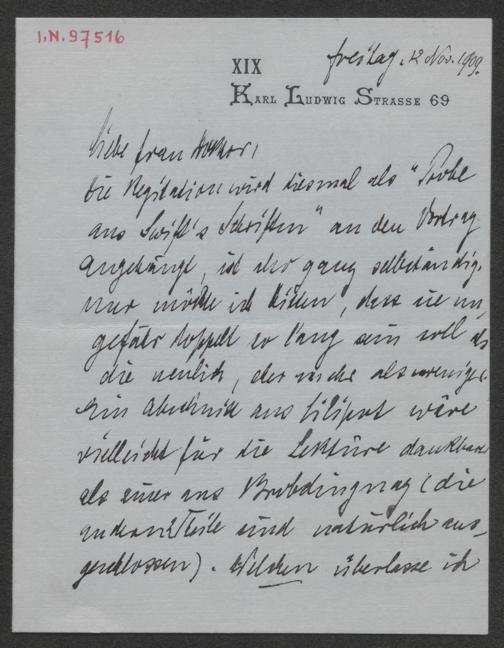 I.N. 97516
freitag, 12 Nov. 1909.
XIX
KARL LUDWIG STRASSE 69
Liebe frau
die Rezitation wird diesmal als "Probe
aus Swift's Schriften" an den Vortrag
angehängt, ist also ganz selbständig.
nur möchte ich bitten, dass sie un-
gefähr doppelt so lang sein soll als
die neulich, eher mehr als weniger.
Ein Abschnitt aus Liliput wäre
vielleicht für die Lektüre dankbarer
als einer aus Brobdingnag (die
andern 2 Teile sind natürlich aus-
geschlossen). Welchen überlasse ich